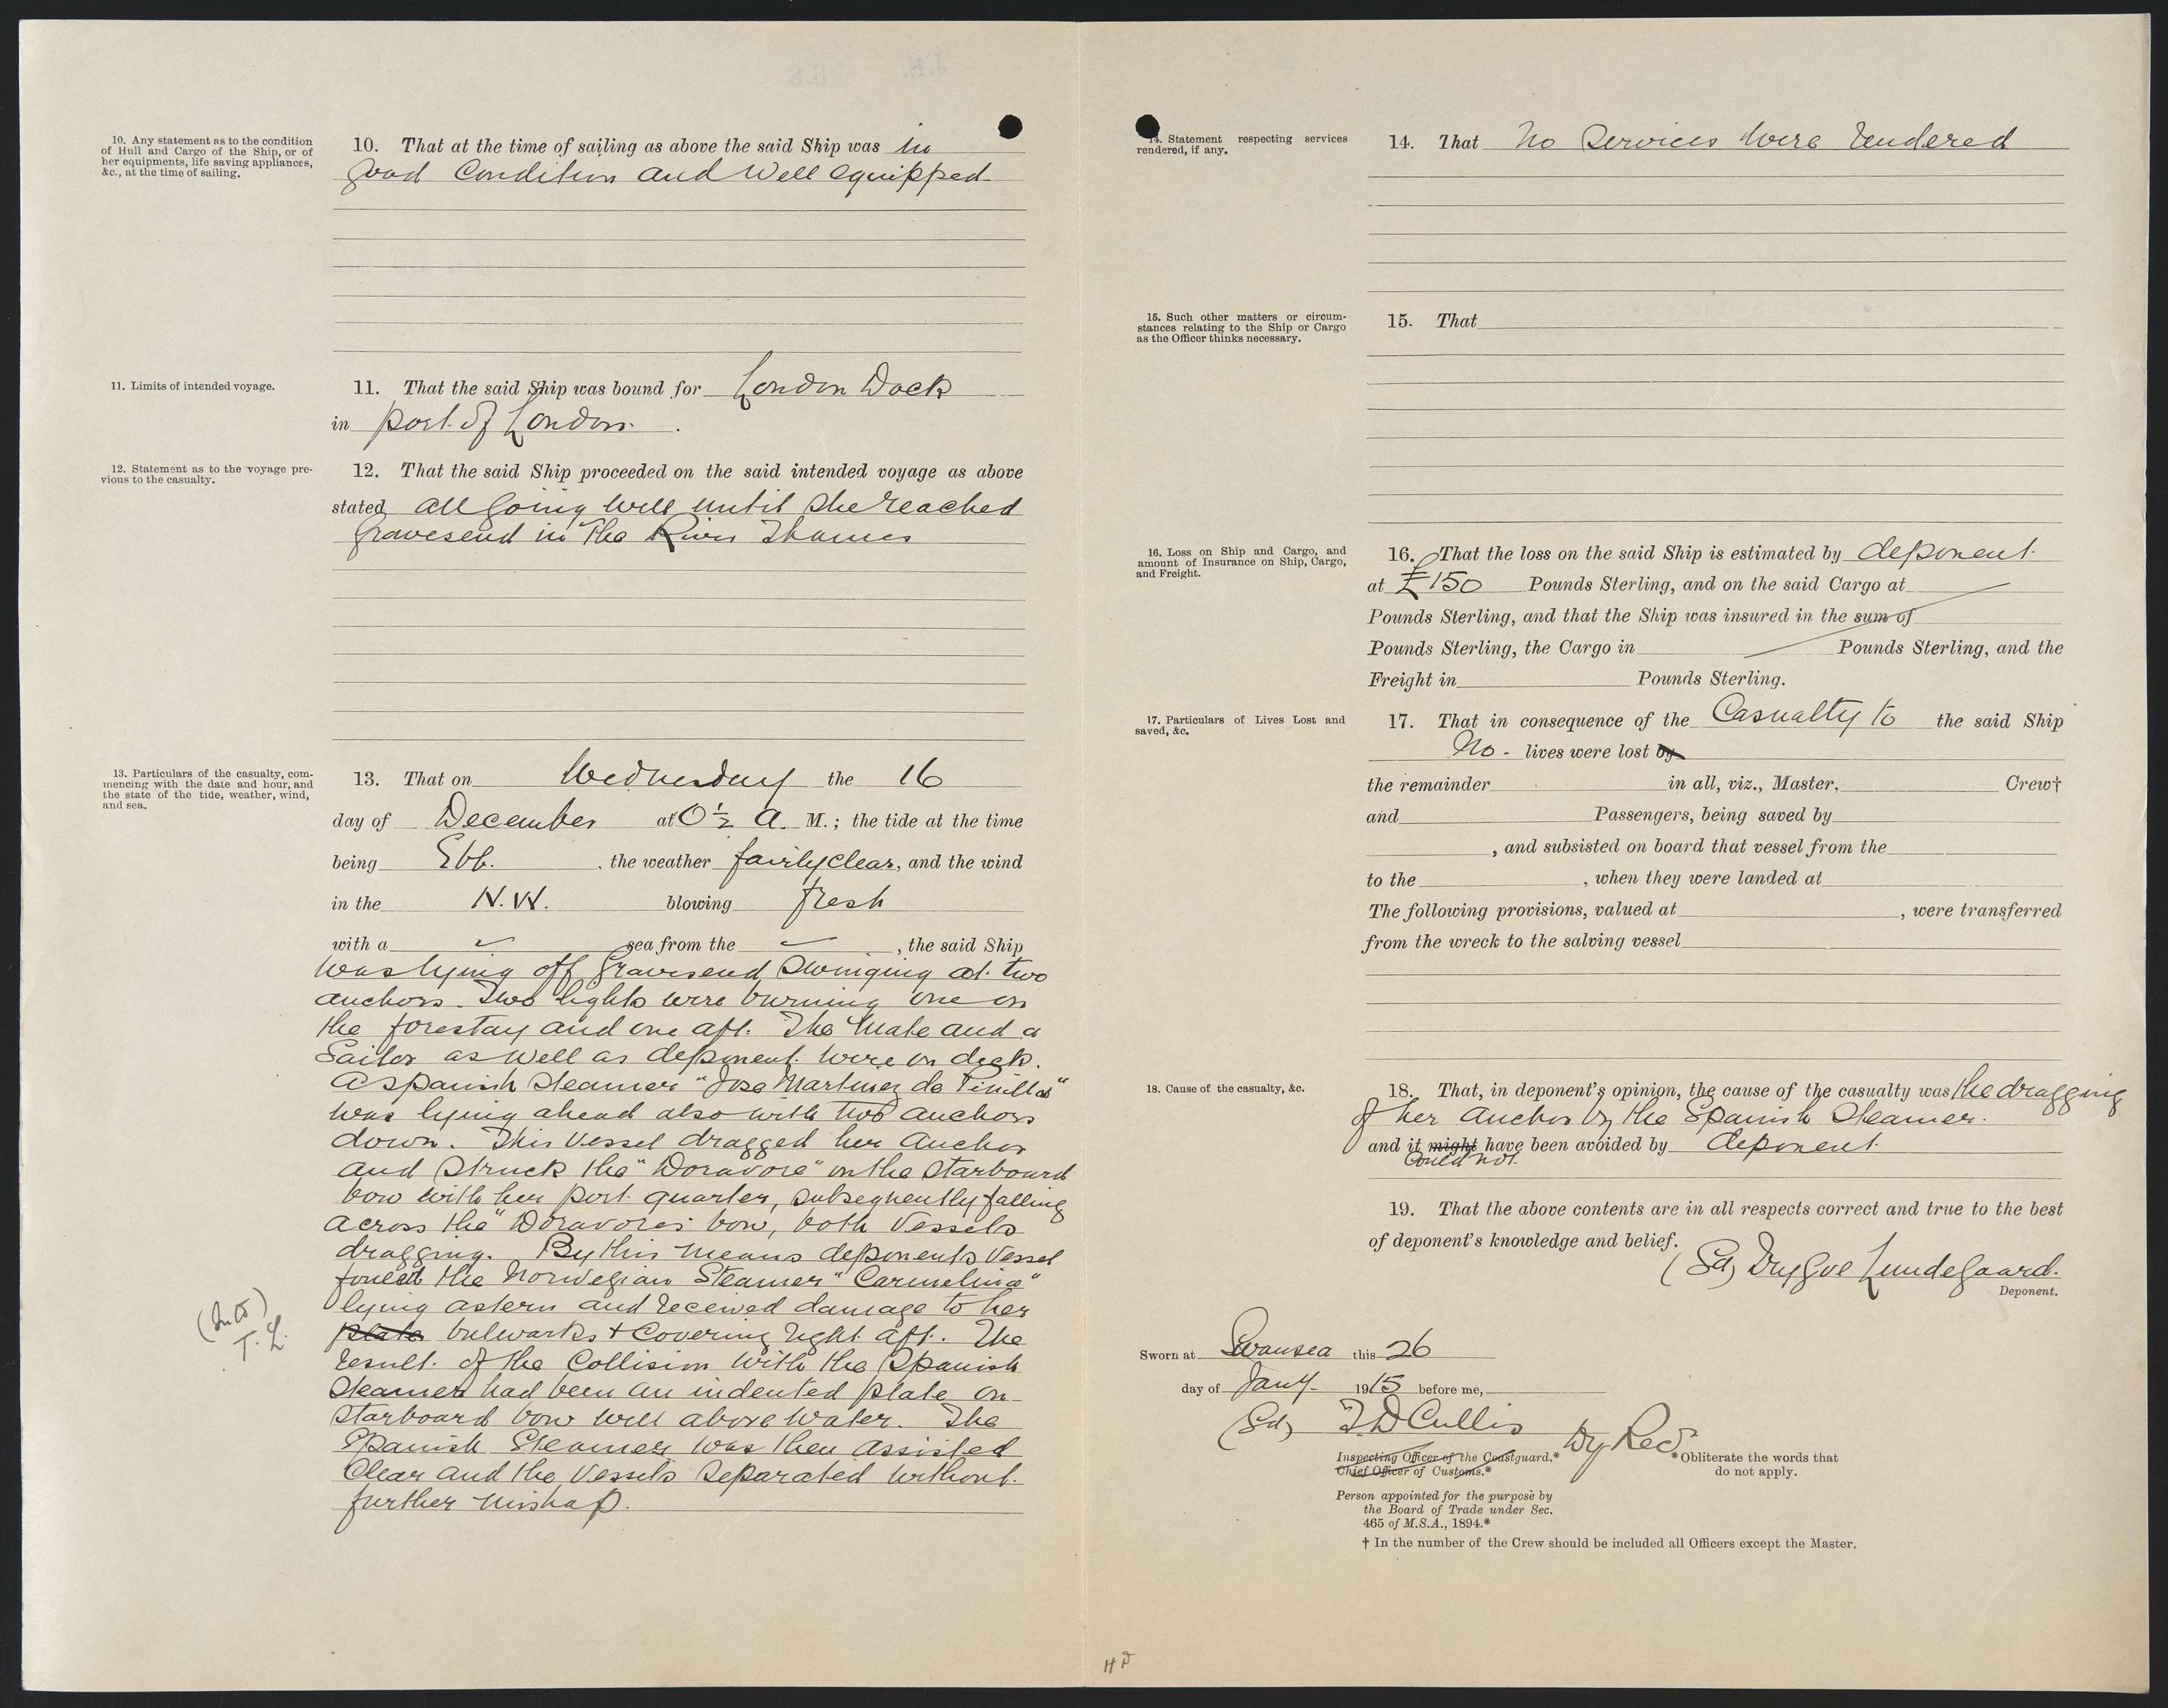 10. Any statement as to the condition
of Hull and Cargo of the Ship, or of
her equipments, life saving appliances,
&c., at the time of sailing.
10. That at the time of sailing as above the said Ship was in
good condition and well equipped
11. Limits of intended voyage.
11. That the said Ship was bound for London Dock
in port of London.
12. Statement as to the voyage pre-
vious to the casualty.
12. That the said Ship proceeded on the said intended voyage as above
stated all going well until she reached
Gravesend in the River Thames
13. Particulars of the casualty, com-
mencing with the date and hour, and
the state of the tide, weather, wind,
and sea.
13. That on Wednesday the 16
day of December at 0½ a. M.; the tide at the time
being Ebb. , the weather fairly clear, and the wind
in the N.W. blowing fresh
with a sea from the , the said Ship
was lying off Gravesend swinging at two
anchors. Two lights were burning one on
the forestay and one aft. The Mate and a
Sailor as well as deponent were on deck.
A Spanish steamer "Jose Martinez de Pinillos"
was lying ahead also with two anchors
down. This vessel dragged her anchor
and struck the "Doravore" on the starboard
bow with her port quarter, subseqnently falling
across the "Doravores bow, both vessels
dragging. By this means deponents vessel
fouled the Norwegian Steamer "Carmelina"
lying astern and received damage to her
plate bulwarks + covering right aft. The
result of the Collision with the Spanish
Steamer had been an indented plate on
starboard bow well above water. The
Spanish Steamer was then assisted
clear and the vessels separated without
further mishap.
T. L.
14. Statement respecting services
rendered, if any.
14. That No services were rendered
15. Such other matters or circum-
stances relating to the Ship or Cargo
as the Officer thinks necessary.
15. That
16. Loss on Ship and Cargo, and
amount of Insurance on Ship, Cargo,
and Freight.
16. That the loss on the said Ship is estimated by deponent.
at £150 Pounds Sterling, and on the said Cargo at
Pounds Sterling, and that the Ship was insured in the sum of
Pounds Sterling, the Cargo in Pounds Sterling, and the
Freight in Pounds Sterling.
17. Particulars of Lives Lost and
saved, &c.
17. That in consequence of the Casualty to the said Ship
No - lives were lost by
the remainder in all, viz., Master, Crew†
and Passengers, being saved by
, and subsisted on board that vessel from the
to the , when they were landed at
The following provisions, valued at , were transferred
from the wreck to the salving vessel
18. Cause of the casualty, &c.
18. That, in deponent's opinion, the cause of the casualty was the dragging
of her anchor by the Spanish Steamer.
and it might have been avoided by deponent
could not.
19. That the above contents are in all respects correct and true to the best
of deponent's knowledge and belief.
(Sd) Trygve Lundegaard.
Deponent.
Sworn at Swansea this 26
day of Jany. 1915 before me,
(Sd) T. D Cullis Dy Rec.
Inspecting Officer of the Coastguard.*
Chief Officer of Customs.*
*Obliterate the words that
do not apply.
Person appointed for the purpose by
the Board of Trade under Sec.
465 of M.S.A., 1894.*
† In the number of the Crew should be included all Officers except the Master.